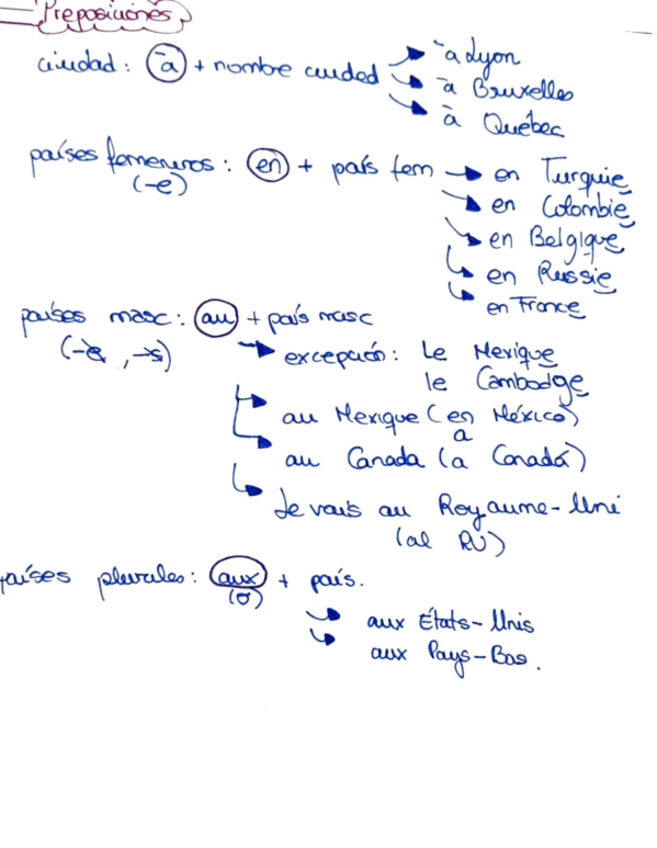 Preposiciones
ciudad: à + nombre ciudad → à Lyon
à Bruxelles
à Québec
países femeninos: en + país fem → en Turquie
(-e) en Colombie
en Belgique
en Russie
en France
países masc: au + país masc
(-e, -s) → excepción: Le Mexique
le Cambodge
au Mexique (en México)
a
au Canada (a Canadá)
Je vais au Royaume-Uni
(al RU)
países plurales: aux + país.
(o)
aux États-Unis
aux Pays-Bas.